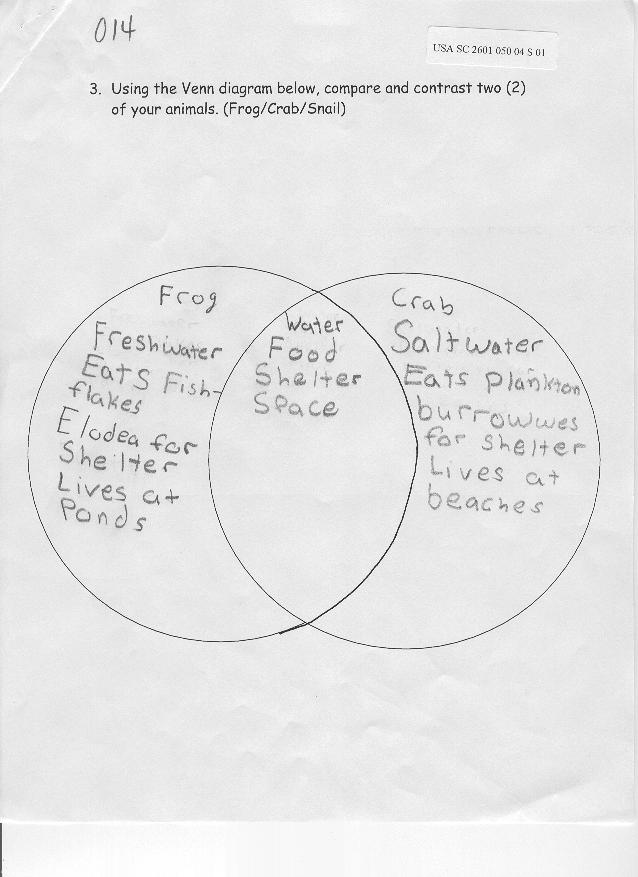 014
USA SC 2601 050 04 S 01
3. Using the Venn diagram below, compare and contrast two (2)
of your animals. (Frog/Crab/Snail)
Frog
Freshwater
Eats Fish-
flakes
Elodea for
Shelter
Lives at
Ponds
Water
Food
Shelter
Space
Crab
Saltwater
Eats plankton
burrowwes
for shelter
Lives at
beaches